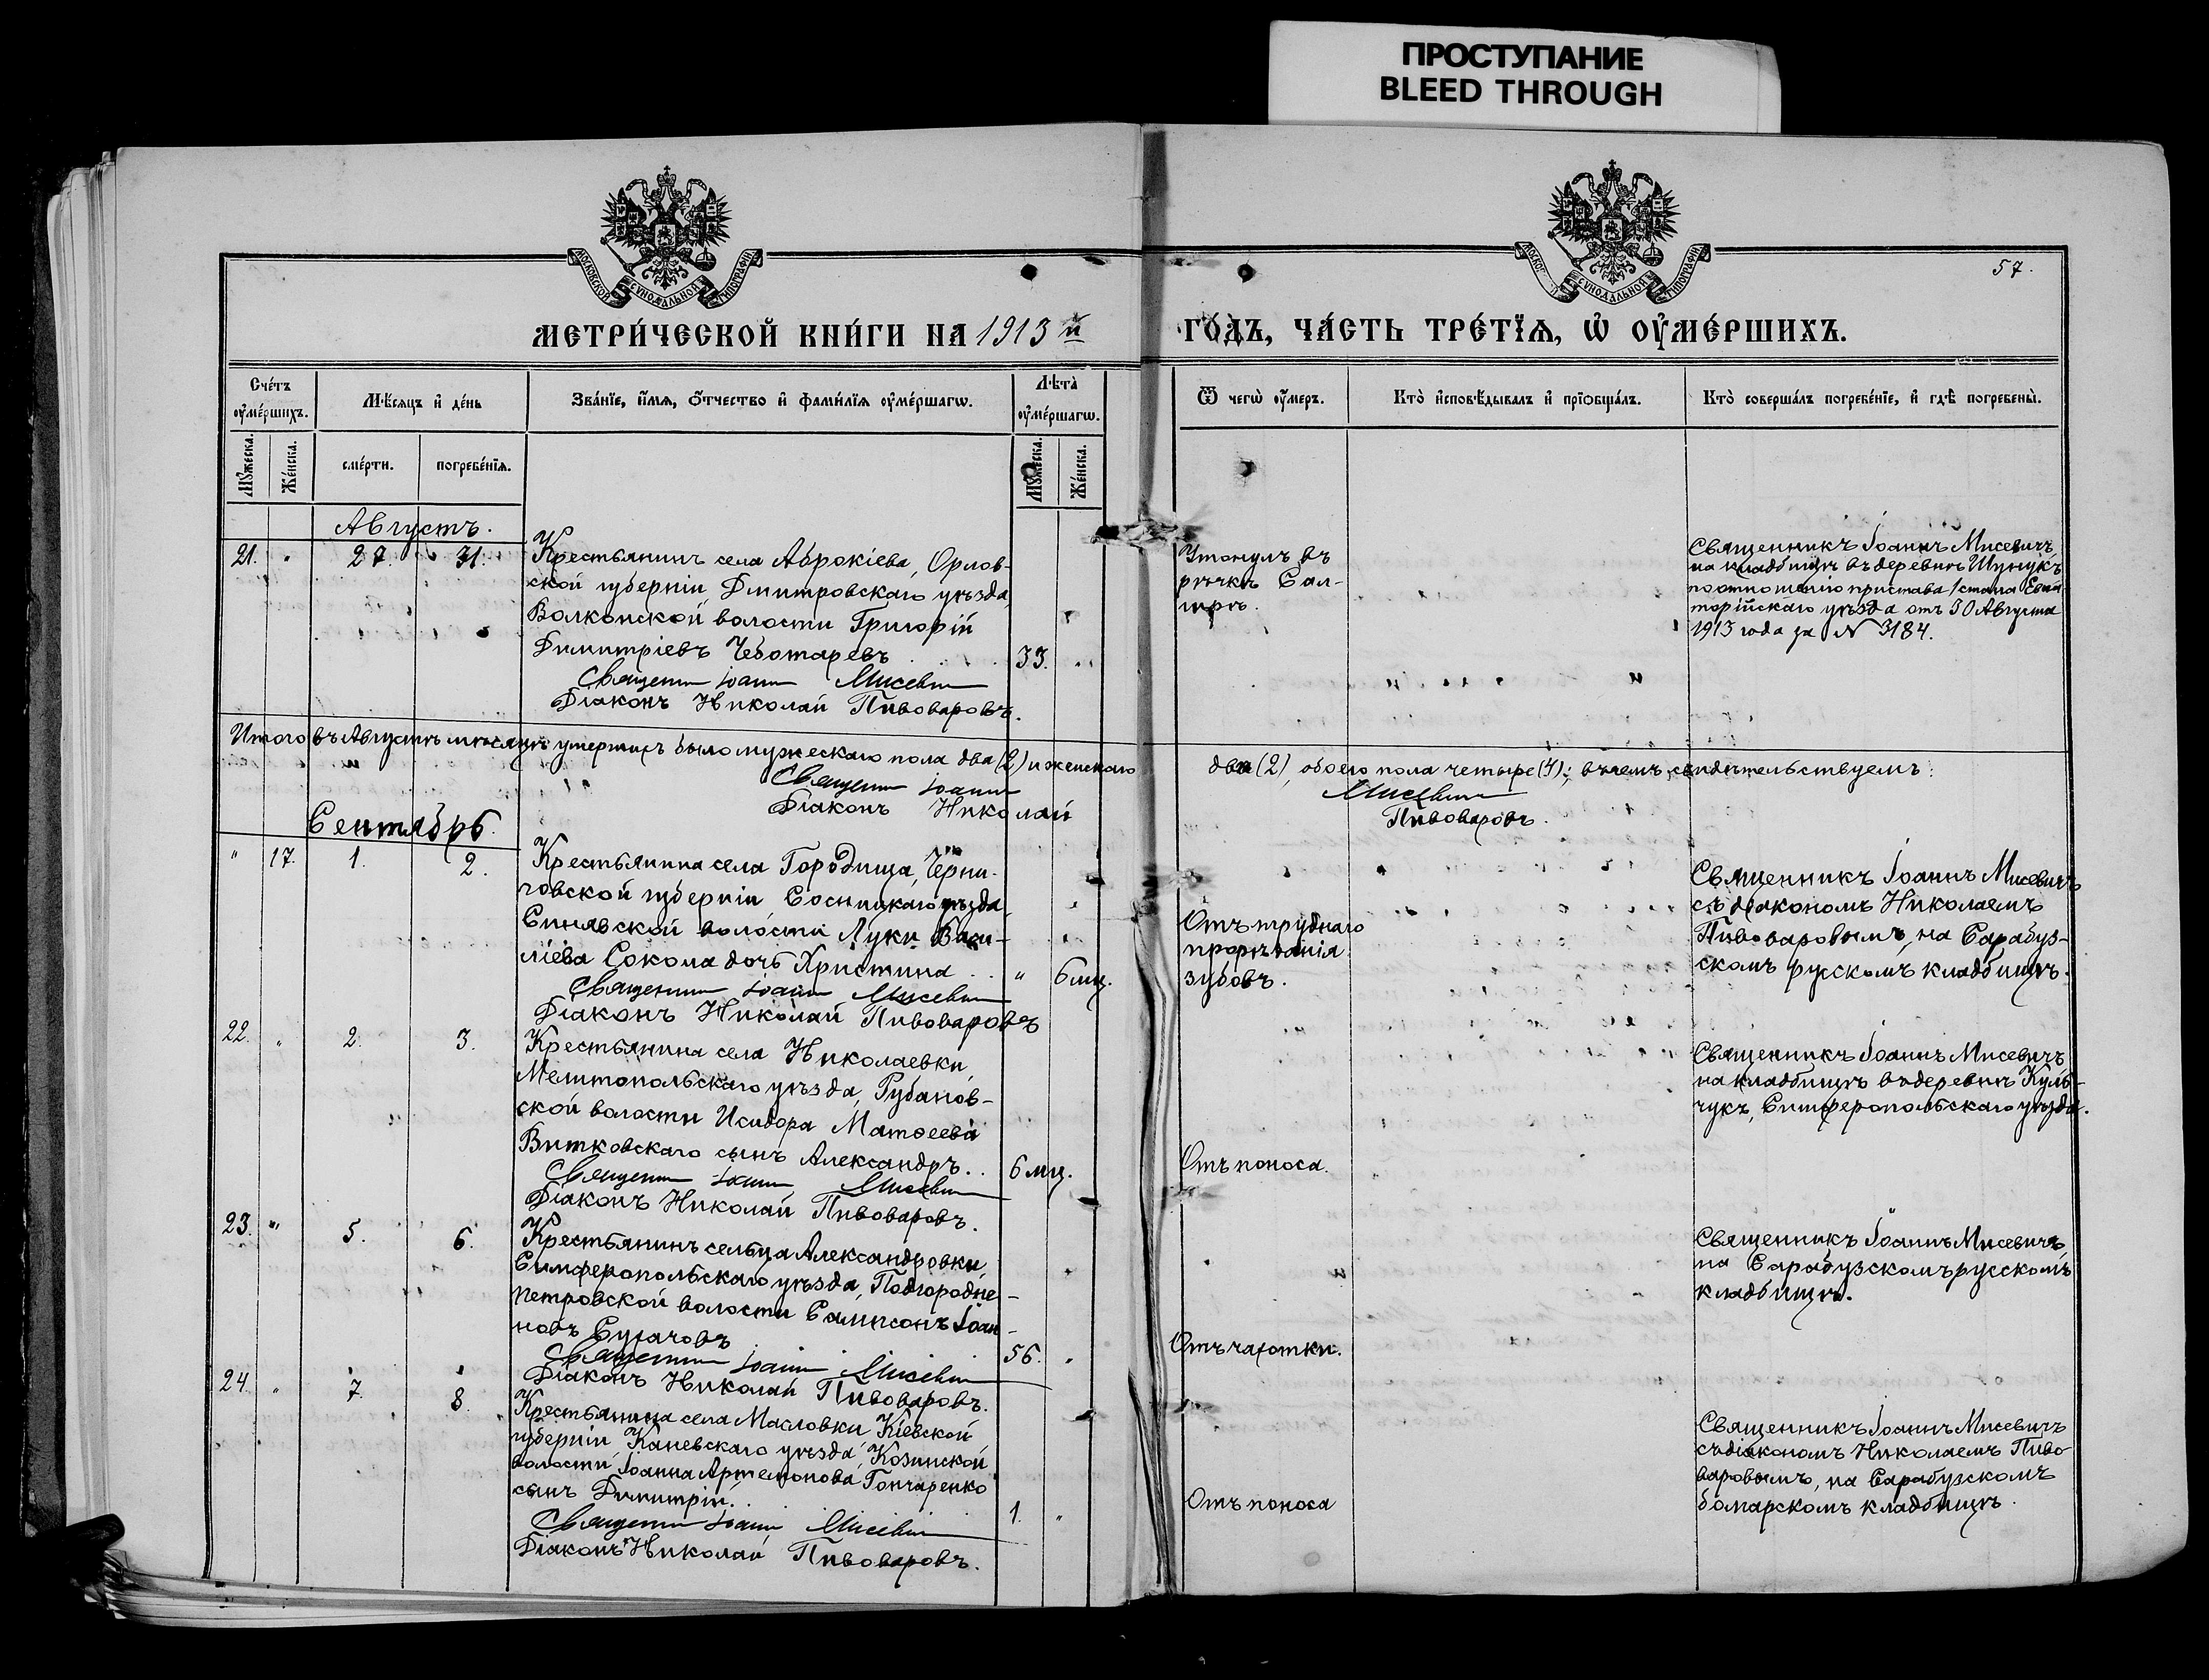 ПРОСТУПАНИЕ
BLEED THROUGH
МОСКОВСКОЙ СУНОДАЛЬНОЙ ТИПОГРАФІИ
МОСКОВСКОЙ СУНОДАЛЬНОЙ ТИПОГРАФІИ
57.
МЕТРИ́ЧЕСКОЙ КНИ́ГИ НА 1913 й
ГО́ДЪ, ЧА́СТЬ ТРЕ́ТЇѦ, Ѡ ОУ҆МЕ́РШИХЪ.
Сче́тъ оу҆ме́ршихъ.
Мѣ́сяцъ и҆ де́нь
Зва́нїе, и҆́мѧ, ѻ҆́тчество и҆ фами́лїѧ оу҆ме́ршагѡ.
Лѣ́та оу҆ме́ршагѡ.
Ѿ чегѡ̀ оу҆́меръ.
Кто̀ и҆сповѣ́дывалъ и҆ прїѡбща́лъ.
Кто̀ соверша́лъ погребе́нїе, и҆ гдѣ̀ погребены̀.
Мꙋ́жеска.
Же́нска.
сме́рти.
погребе́нїѧ.
Мꙋ́жеска.
Же́нска.
Августъ.
21. " 27. 31.
Крестьянинъ села Аврокіева, Орлов-
ской губерніи, Дмитровскаго уѣзда,
Волконской волости Григорій
Димитріевъ Чеботаревъ 33. "
Священникъ Іоаннъ Мисевичъ
Діаконъ Николай Пивоваровъ.
Утонулъ въ
рѣчкѣ Сал-
гирѣ.
Священникъ Іоаннъ Мисевичъ,
на кладбищѣ въ деревнѣ Шунукъ
по отношенію пристава 1 стана Евпа
торійскаго уѣзда отъ 30 Августа
1913 года за № 3184.
Итого въ Августѣ мѣсяцѣ умершихъ было мужескаго пола два (2) и женскаго
два (2), обоего пола четыре (4); въ чемъ свидѣтельствуемъ:
Священникъ Іоаннъ Мисевичъ
Діаконъ Николай Пивоваровъ.
Сентябрь.
" 17. 1. 2.
Крестьянина села Городища, Черни-
говской губерніи Сосницкаго уѣзда,
Синявской волости Луки Васи-
ліева Сокола дочь Христина .. " 6 мц.
Священникъ Іоаннъ Мисевичъ
Діаконъ Николай Пивоваровъ
Отъ труднаго
прорѣзанія
зубовъ.
Священникъ Іоаннъ Мисевичъ
съ діакономъ Николаемъ
Пивоваровымъ, на Сарабуз-
скомъ русскомъ кладбищѣ.
22. " 2. 3.
Крестьянина села Николаевки,
Мелитопольскаго уѣзда, Рубанов-
ской волости Исидора Матѳеева
Витковскаго сынъ Александръ.. 6 мц.
Священникъ Іоаннъ Мисевичъ
Діаконъ Николай Пивоваровъ.
Отъ поноса.
Священникъ Іоаннъ Мисевичъ,
на кладбищѣ въ деревнѣ Куль-
чукъ, Симферопольскаго уѣзда.
23. " 5. 6.
Крестьянинъ сельца Александровки,
Симферопольскаго уѣзда, Подгородне-
петровской волости Сампсонъ Іоан-
новъ Сугачовъ 56. "
Священникъ Іоаннъ Мисевичъ
Діаконъ Николай Пивоваровъ.
Отъ чахотки.
Священникъ Іоаннъ Мисевичъ,
на Сарабузскомъ русскомъ
кладбищѣ.
24. " 7. 8.
Крестьянина села Масловки, Кіевской
губерніи Каневскаго уѣзда, Козинской
волости Іоанна Артемонова Гончаренко
сынъ Димитрій. 1. "
Священникъ Іоаннъ Мисевичъ
Діаконъ Николай Пивоваровъ.
Отъ поноса
Священникъ Іоаннъ Мисевичъ
съ діакономъ Николаемъ Пиво-
варовымъ, на Сарабузскомъ
болгарскомъ кладбищѣ.